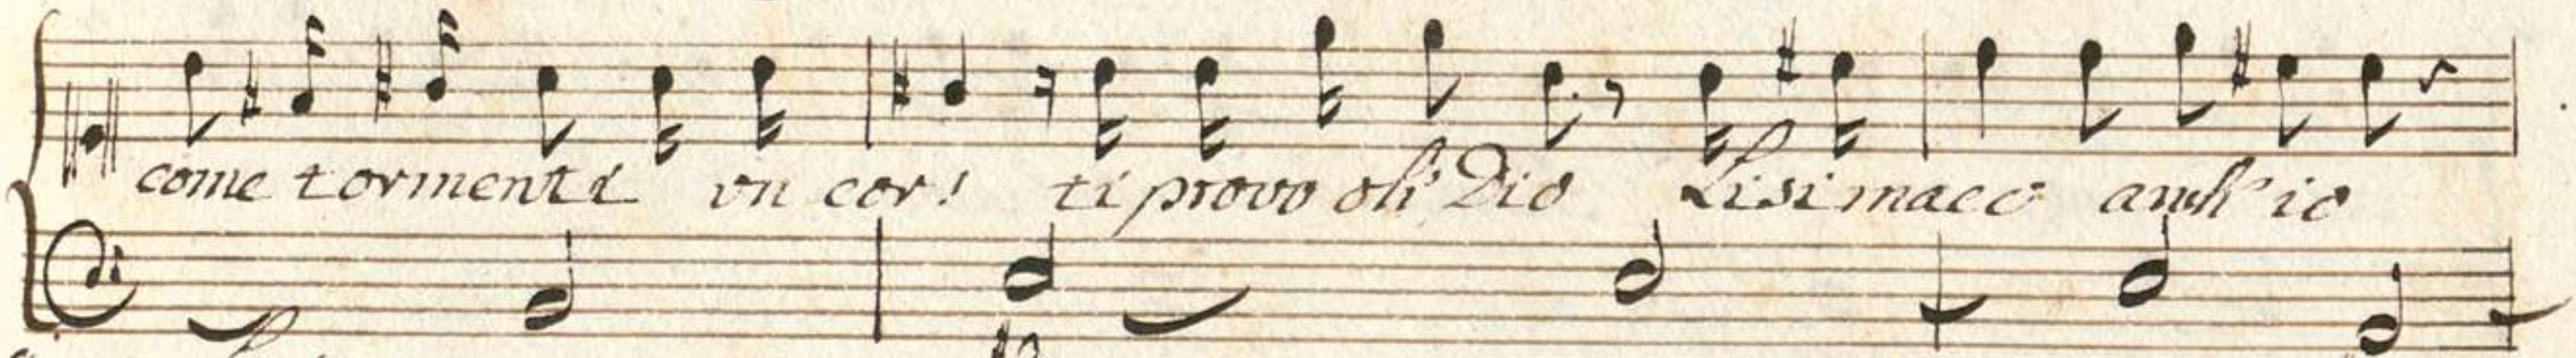 come tormenti un cor! ti provo oh' Dio Lisimaco anch'io